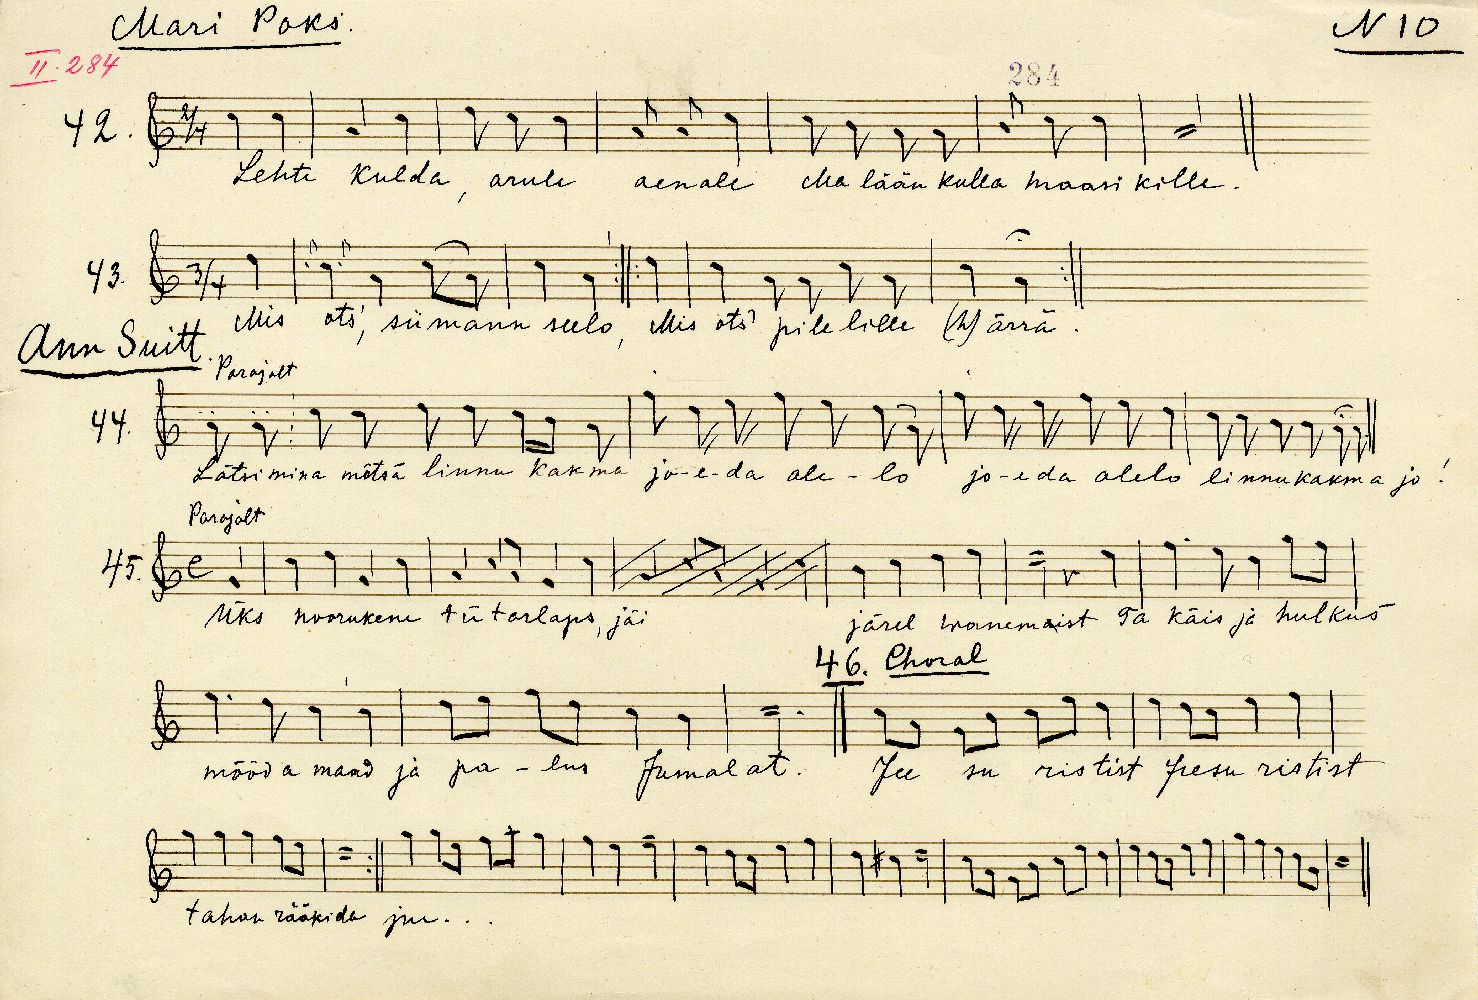 Mari Poks.
N 10
II. 284
284
42. 2/4
Lehte kulda, arule aenale Ma lään kulla maasikille.
43. 3/4
Mis ots', siimann seelo, Mis ots' pilelille (h)ärrä.
Ann Suitt.
Parajalt
44.
Lätsi mina mõtsa linnu kakma jo-e-da ale-lo jo-eda alelo linnukakma jo!
Parajalt
45. C
Üks noorukene tütarlaps, jäi järel wanemaist Ta käis ja hulkus
46. Choral
mööda maad ja pa-lus Jumalat. Jee su ristist Jeesu ristist
tahan rääkida ju...